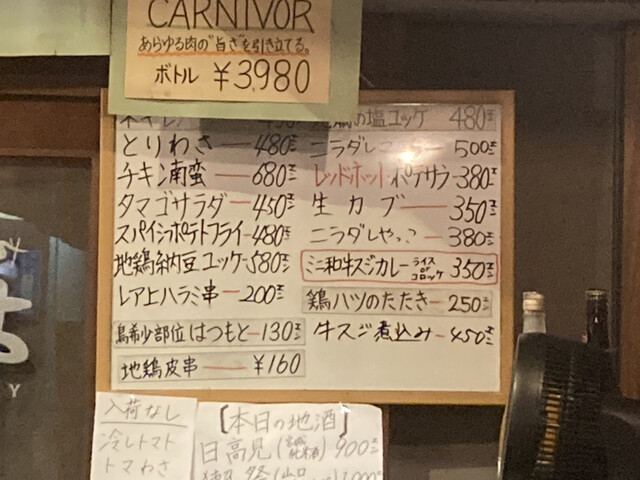 CARNIVOR
あらゆる肉の"旨さ"を引き立てる。
ボトル ¥3,980
とりわさ 480
チキン南蛮 680
タマゴサラダ 450
スパイシーポテトフライ 480
地鶏納豆ユッケ 580
レア上ハラミ串 200
鳥希少部位はつもと 130
地鶏皮串 ¥160
の塩ユッケ 480
ニラダレ 500
レッドホットポテサラ 380
生カブ 350
ニラダレやっこ 380
ミニ和牛スジカレー ライス or コロッケ 350
鶏ハツのたたき 250
牛スジ煮込み 450
入荷なし
冷しトマト
トマわさ
【本日の地酒】
日高見 (宮城 900
山口